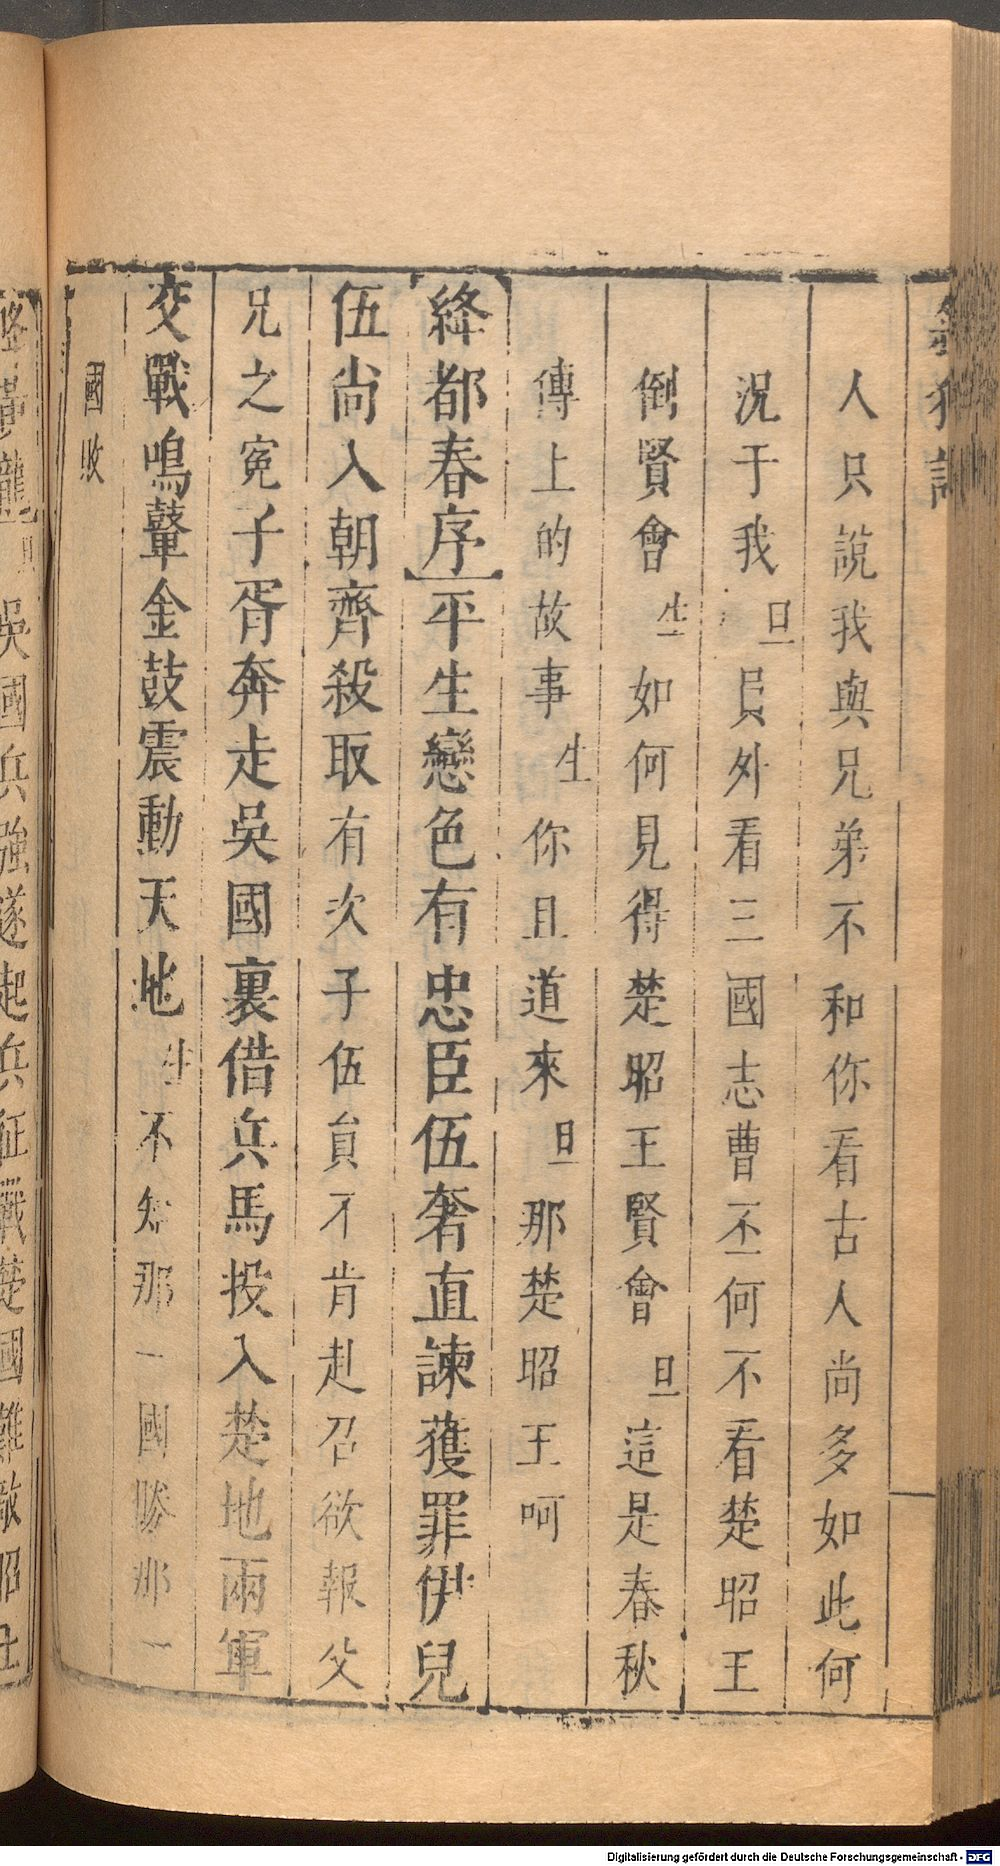 殺狗記
人只說我與兄弟不和你看古人尚多如此何
況于我旦員外看三國志曹丕何不看楚昭王
倒賢會生如何見得楚昭王賢會旦這是春秋
傳上的故事生你且道來旦那楚昭王呵
絳都春序平生戀色有忠臣伍奢直諫獲罪伊兒
伍尚入朝齊殺取有次子伍員不肯赴召欲報父
兄之寃子胥奔走吳國裏借兵馬投入楚地兩軍
交戰鳴鼙金鼓震動天地生不知那一國勝那一
國敗
吳國兵強遂起兵征戰楚國難敵昭王
Digitalisierung gefördert durch die Deutsche Forschungsgemeinschaft - DFG